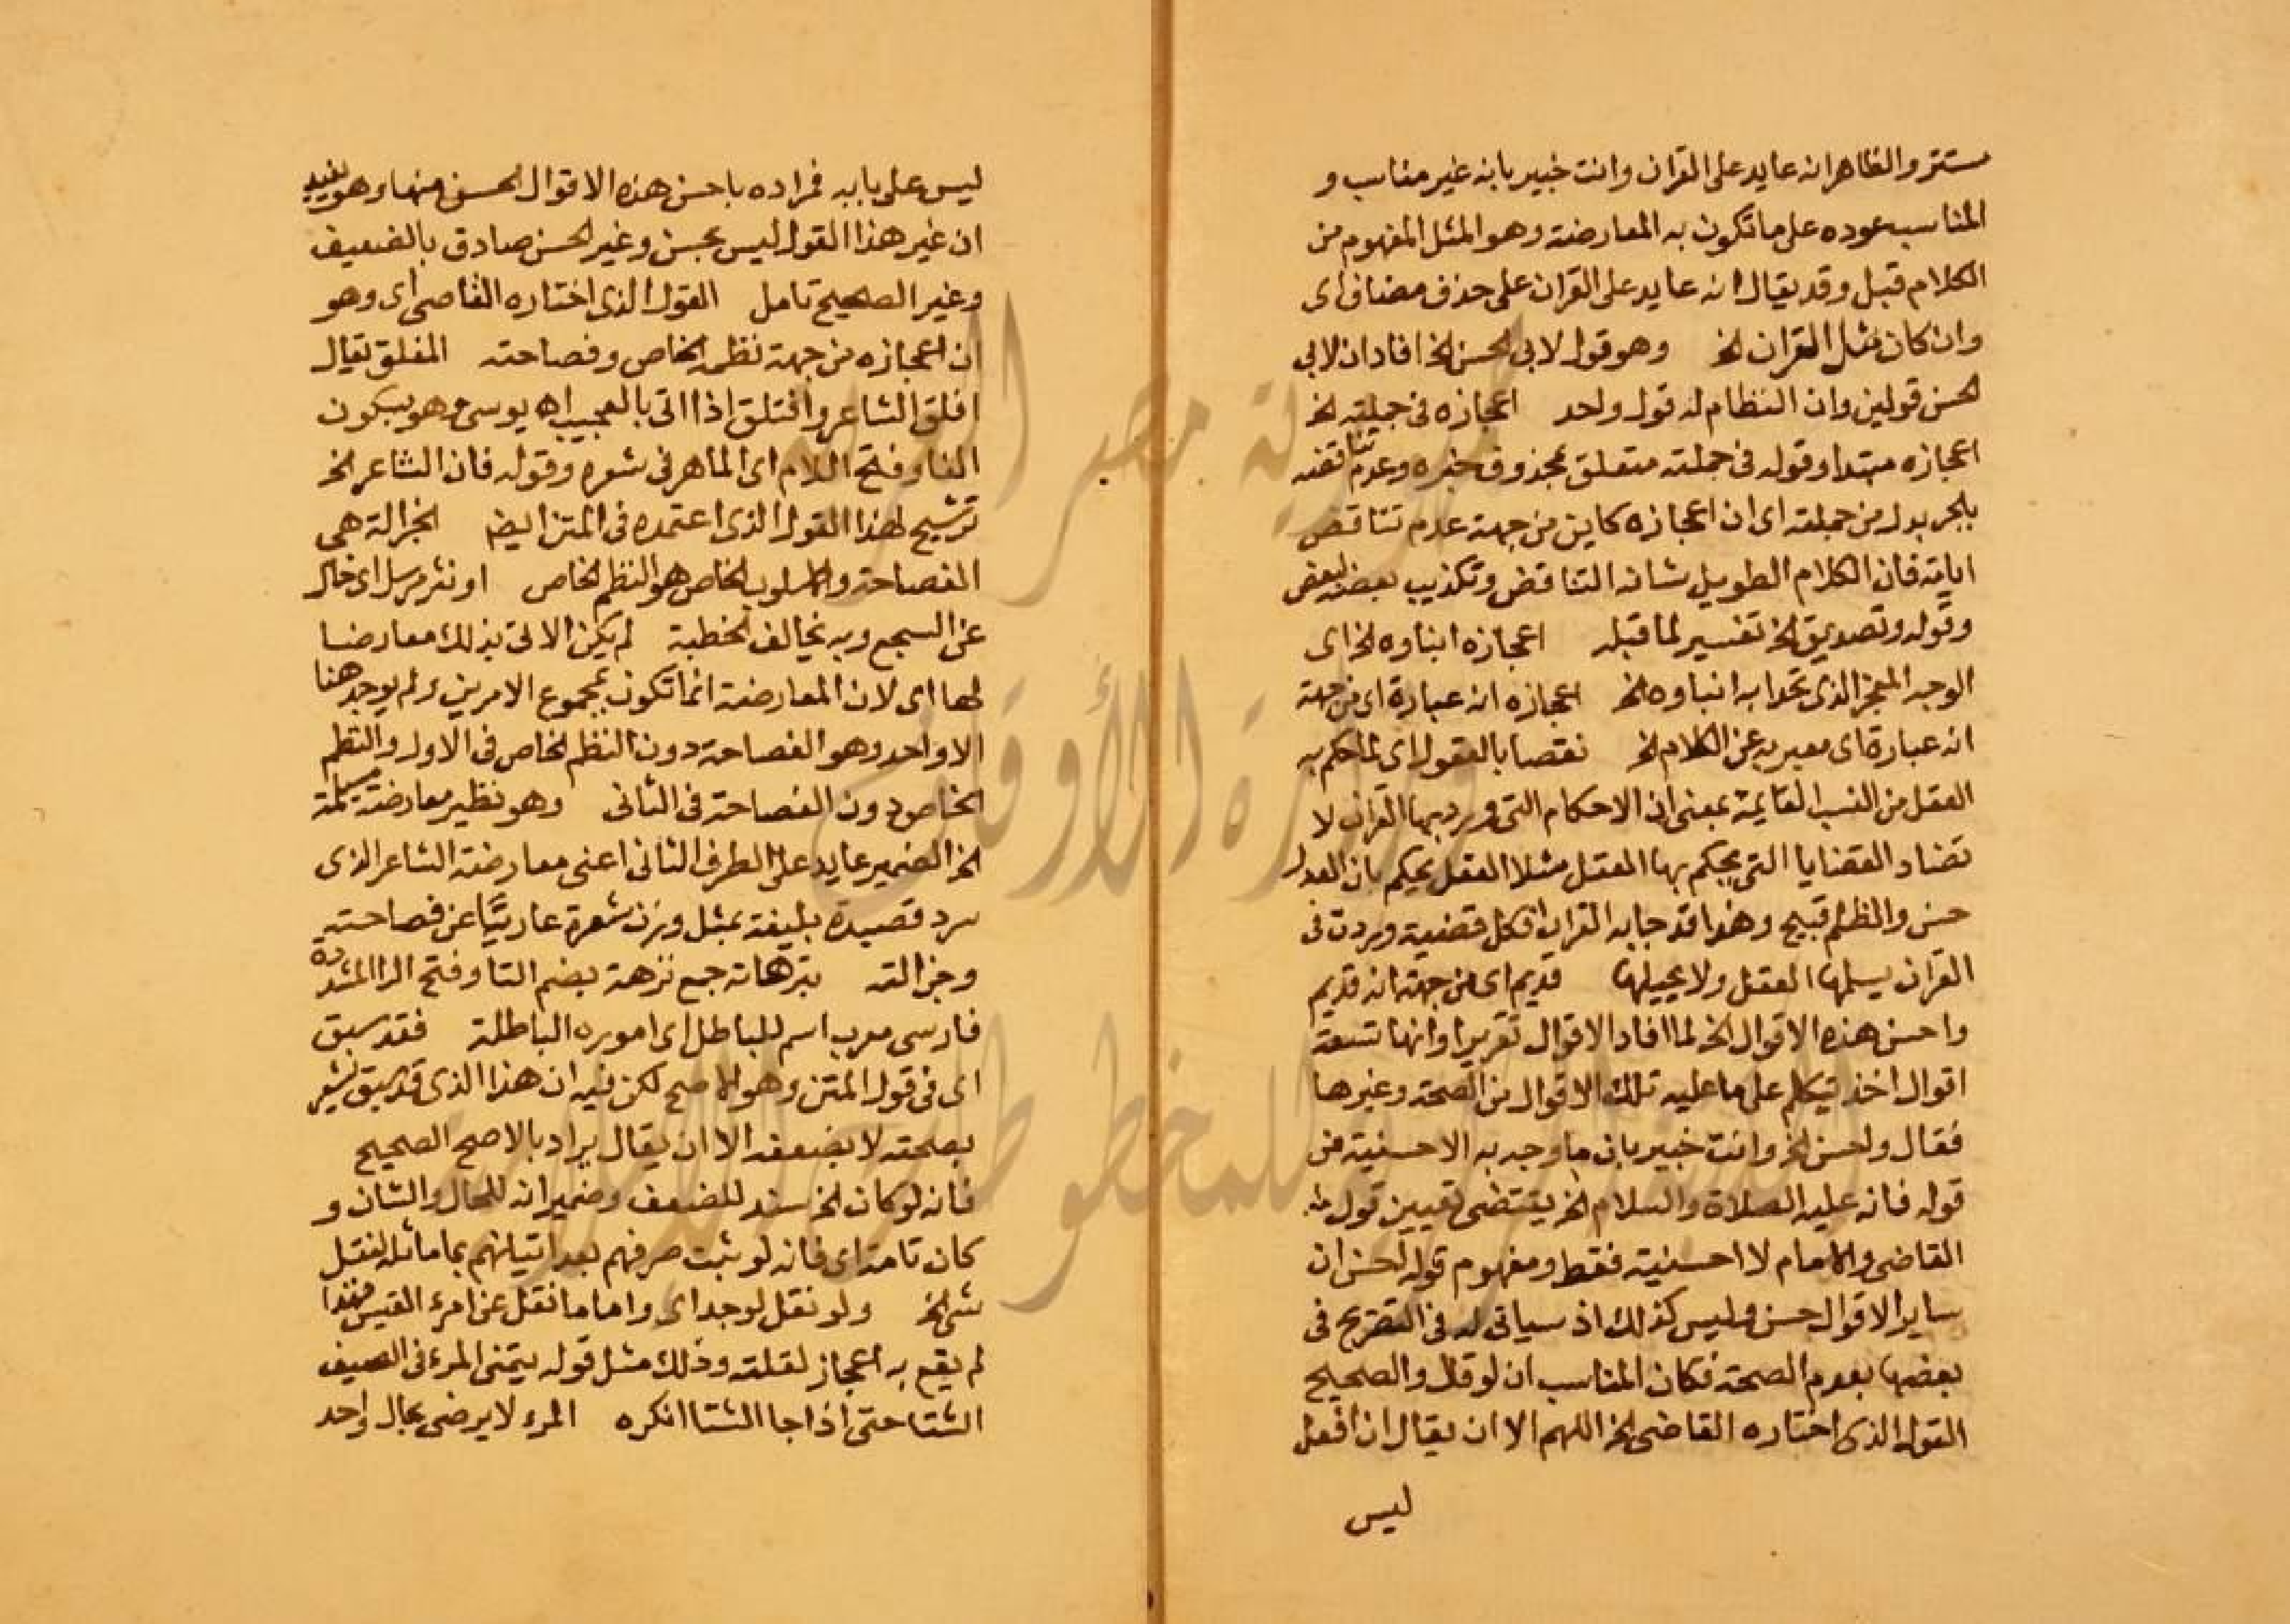 مستتر والظاهر انه عايد على القران وانت خبير بانه غير مناسب و
المناسب عوده على ما تكون به المعارضة وهو المثل المفهوم من
الكلام قبل وقد يقال انه عايد على القران على حذف مضاف اى
وان كان مثل القران الخ وهو قول لابى الحسن الخ افاد ان لابى
الحسن قولين وان النظام له قول واحد اعجازه فى جملته الخ
اعجازه مبتدا وقوله فى جملته متعلق بمحذوف خبره وعدم تناقضه
بالجر بدل من جملته اى ان اعجازه كاين من جهة عدم تناقض
اياته فان الكلام الطويل شانه التناقض وتكذيب بعضه لبعض
وقوله وتصديق الخ تفسير لما قبله اعجازه انباوه الخ اى
الوجه المعجز الذى تحدا به انباوه الخ اعجازه انه عبارة اى من جهة
انه عبارة اى معبر به عن الكلام الخ نقتضا بالعقول اى لما حكم به
العقل من النسب القايمة بمعنى ان الاحكام التى ورد بها القران لا
تضاد القضايا التى يحكم بها العقل مثلا العقل يحكم بان العدل
حسن والظلم قبيح وهذا قد جا به القران فكل قضية وردت فى
القران يسلمها العقل ولا يحيلها قديم اى من جهة انه قديم
واحسن هذه الاقوال الخ لما افاد الاقوال تقريرا وانها تسعة
اقوال اخذ يتكلم على ما عليه تلك الاقوال من الصحة وغيرها
فقال واحسن الخ وانت خبير بان ما وجه به الاحسنية من
قوله فانه عليه الصلاة والسلام الخ يقتضى تعيين قول
القاضى والامام لا احسنيته فقط ومفهوم قوله احسن ان
ساير الاقوال حسن وليس كذلك اذ سياتى له فى التصريح فى
بعضها بعدم الصحة فكان المناسب ان لو قال والصحيح
القول الذى اختاره القاضى الخ اللهم الا ان يقال ان افعل
ليس
ليس على بابه فمراده باحسن هذه الاقوال الحسن منها وهو يفيد
ان غير هذا القول ليس بحسن وغير الحسن صادق بالضعيف
وغير الصحيح تامل القول الذى اختاره القاضى اى وهو
ان اعجازه من جهة نظمه الخاص وفصاحته المفلق يقال
افلق الشاعر وافتلق اذا اتى بالعجيب اه يوسى وهو بسكون
الفا وفتح اللام اى الماهر فى شعره وقوله فان الشاعر الخ
ترشيح لهذا القول الذى اعتمده فى المتن ايضا الجزالة هى
الفصاحة والاسلوب الخاص هو النظم الخاص او نثر مرسل اى خال
عن السجع وبه يخالف الخطبة لم يكن الاتى بذلك معارضا
لها اى لان المعارضة انما تكون بمجموع الامرين ولم يوجد هنا
الا واحد وهو الفصاحة دون النظم الخاص فى الاول والنظم
الخاص دون الفصاحة فى الثانى وهو نظير معارضة مسيلمة
الخ الضمير عايد على الطرف الثانى اعنى معارضة الشاعر الذى
سرد قصيدة بليغة بمثل وزن شعره عاريا عن فصاحته
وجزالته بترهاته جمع ترهة بضم التا وفتح الرا المشددة
فارسى معرب اسم للباطل اى اموره الباطلة فقد سبق
اى فى قول المتن وهو الاصح لكن فيه ان هذا الذى قد سبق يشير
بصحته لا بضعفه الا ان يقال يراد بالاصح الصحيح
فانه لو كان الخ سند للضعف وضمير انه للحال والشان و
كان تامة اى فانه لو ثبت صرفهم بعد اتيانهم بما ماثله لنقل
شى الخ ولو نقل لوجد اى واما ما نقل عن امرء القيس فهذا
لم يقع به اعجاز لقلته وذلك مثل قوله يتمنى المرء فى الصيف
الشتا حتى اذا جا الشتا انكره المرء لا يرضى بحال واحد